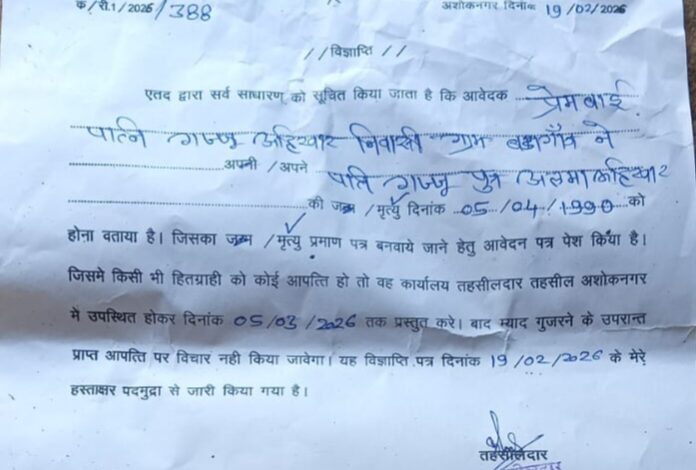 क/री.1/2026/388 अशोकनगर दिनांक 19/02/2026
//विज्ञाप्ति//
एतद द्वारा सर्व साधारण को सूचित किया जाता है कि आवेदक प्रेमबाई
पत्नि गज्जू अहिरवार निवासी ग्राम बड़ागाँव ने
अपनी/अपने पति गज्जू पुत्र अलमा अहिरवार
की जन्म/मृत्यु दिनांक 05/04/1990 को
होना बताया है। जिसका जन्म/मृत्यु प्रमाण पत्र बनवाये जाने हेतु आवेदन पत्र पेश किया है।
जिसमे किसी भी हितग्राही को कोई आपत्ति हो तो वह कार्यालय तहसीलदार तहसील अशोकनगर
में उपस्थित होकर दिनांक 05/03/2026 तक प्रस्तुत करे। बाद म्याद गुजरने के उपरान्त
प्राप्त आपत्ति पर विचार नही किया जावेगा। यह विज्ञाप्ति पत्र दिनांक 19/02/2026 के मेरे
हस्ताक्षर पदमुद्रा से जारी किया गया है।
तहसीलदार